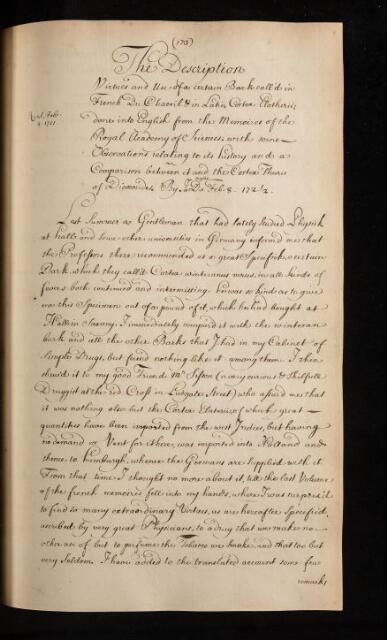 (170)
The Description
Virtues and Use of a certain Bark call'd in
French Du Chacril & in Latin Cortex Elatherii
done into English from the Memoires of the
Royal Academy of Sciences with some
Observations relating to its history and a
Comparison between it and the Cortex Thuris
of Dioscorides By read Feb. 8. 172½.
Last Summer a Gentleman that had lately studied Physick
at Halle and some other universities in Germany inform'd me that
the Professors there recommended as a great Specifick a certain
Bark which they call'd Cortex in all kinds of
fevers both continued and intermitting he was so kind as to give
me this Specimen out of a pound of it, which he had bought at
Hall in Saxony. I immediately compar'd it with the winteran
bark and all the other Barks that I had in my Cabinet of
simple Drugs, but found nothing like it among them. I then
shew'd it to my good Friend Mr (a very curious & Skilfull
Druggist at the red Cross in Ludgate Street) who assur'd me that
it was nothing else but the Cortex of which great
quantities have been imported from the west Indies, but having
no demand or Vent for it here, was imported into Holland and
thence to Hamburgh, whence the Germans are supplied with it
From that time I thought no more about it, till the last Volume
of the french memoires fell into my hands, where I was surpris'd
to find so many extraordinary Virtues, as are hereafter specified,
ascribed by very great Physicians, to a drug that we make no
other use of but to perfume the Tobacco we smoke, and that too but
very seldom. I have added to the translated account some few
remarks